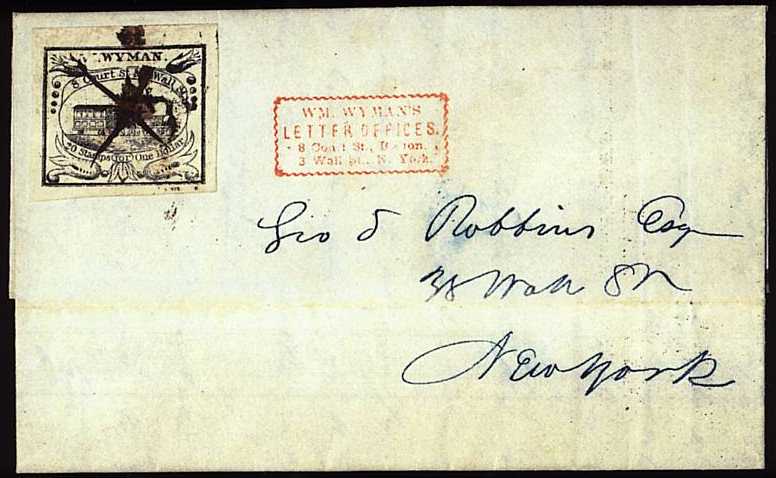 WYMAN.
8 Court St. & 3 Wall St.
20 Stamps for One Dollar
WM. WYMAN'S
LETTER OFFICES.
8 Court St., Boston.
3 Wall St., N. York.
Geo S Robbins Esq
38 Wall St
New York